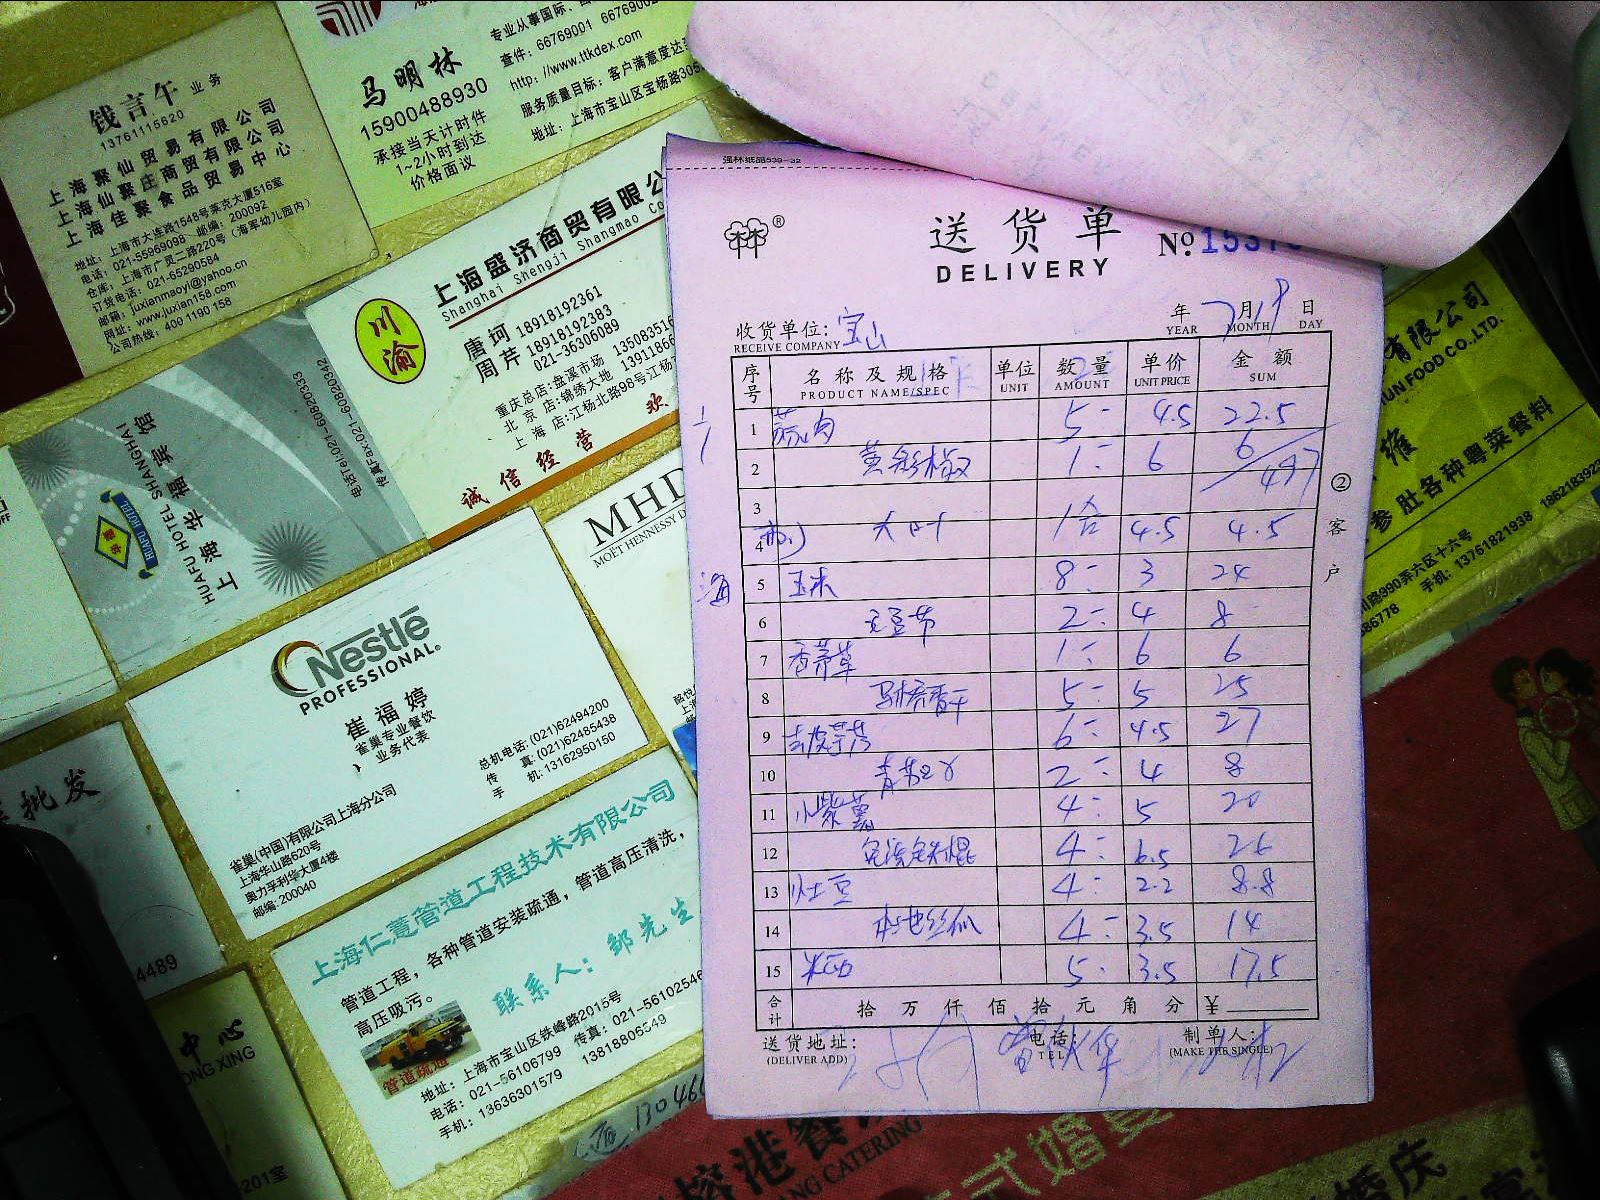 钱言午 业务
13761115620
上海聚仙贸易有限公司
上海仙聚庄商贸有限公司
上海佳聚食品贸易中心
地址：上海市大连路1548号莱克大厦516室
电话：021-55969098 邮编：200092
仓库：上海市广灵二路220号（海军幼儿园内）
订货电话：021-65290584
邮箱：juxianmaoyi@yahoo.cn
网址：www.juxian158.com
公司热线：400 1190 158
马明林
15900488930
承接当天计时件
1~2小时到达
价格面议
专业从事国际、
查件：66769001 6676900
http://www.ttkdex.com
服务质量目标：客户满意度达
地址：上海市宝山区宝杨路305
川渝
上海盛济商贸有限公
Shanghai Shengji Shangmao Co
唐珂 18918192361
周芹 18918192383
021-36306089
重庆总店：盘溪市场 13508351
北京店：锦绣大地 1391186
上海店：江杨北路98号江杨
诚信经营 欢
电话Tel:021-60820333
传真Fax:021-60820342
上海华福宾馆
HUAFU HOTEL SHANGHAI
HUAFU HOTEL
MHD
MOËT HENNESSY D
Nestlé
PROFESSIONAL®
崔福婷
雀巢专业餐饮
业务代表
总机电话：(021)62494200
传 真：(021)62485438
手 机：13162950150
雀巢(中国)有限公司上海分公司
上海华山路620号
奥力孚利华大厦4楼
邮编：200040
批发
4489
上海仁薏管道工程技术有限公司
管道工程，各种管道安装疏通，管道高压清洗，
高压吸污。
联系人：邹先生
管道疏通
地址：上海市宝山区铁峰路2015号
电话：021-56106799 传真：021-5610254
手机：13636301579 13818806549
中心
ONG XING
201室
强林纸品539-32
送货单
DELIVERY
No.1537
年 7月19日
YEAR MONTH DAY
收货单位：宝山
RECEIVE COMPANY
序号 名称及规格 单位 数量 单价 金额
PRODUCT NAME/SPEC UNIT AMOUNT UNIT PRICE SUM
1 5- 4.5 22.5
2 黄彩椒 1- 6 6
497
3
4 大叶 1合 4.5 4.5
海
5 玉米 8- 3 24
6 2- 4 8
7 香茅草 1- 6 6
8 马桥香干 5- 5 25
9 去皮芋艿 6- 4.5 27
10 2- 4 8
11 小紫薯 4- 5 20
12 4- 6.5 26
13 4- 2.2 8.8
14 本地丝瓜 4- 3.5 14
15 米西 5- 3.5 17.5
合计 拾 万 仟 佰 拾 元 角 分 ¥
送货地址： 电话： 制单人：
(DELIVER ADD) TEL (MAKE THE SINGLE)
②客户
有限公司
UN FOOD CO.,LTD.
维
参肚各种粤菜餐料
路990弄六区十六号
86778 手机：13761821938 1862183923
港餐
ANG CATERING
式婚宴
婚庆